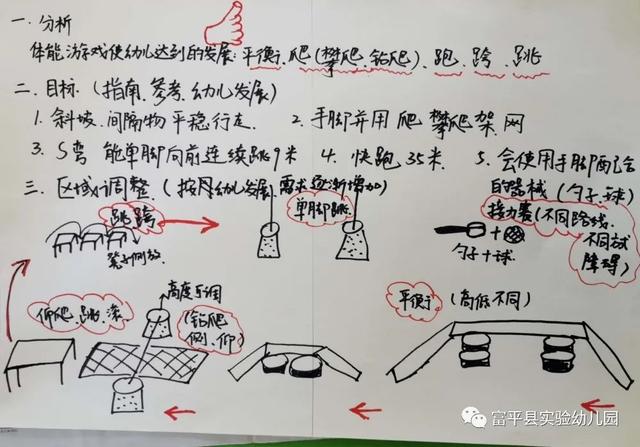 一.分析
体能游戏使幼儿达到的发展:平衡、爬(攀爬、钻爬)、跑、跨、跳
二.目标.(指南.参考.幼儿发展)
1.斜坡.间隔物平稳行走. 2.手脚并用爬攀爬架.网
3.S弯 能单脚向前连续跳9米 4.快跑35米. 5.会使用手脚配合
的器械(勺子.球)
三.区域调整.(按照幼儿发展.需求逐渐增加)
跳跨
凳子侧放
单脚跳
勺子+球.
接力赛(不同路线.
不同式
障碍)
仰爬、跳、滚
高度可调
(钻爬
侧、仰)
平衡
(高低不同)
富平县实验幼儿园